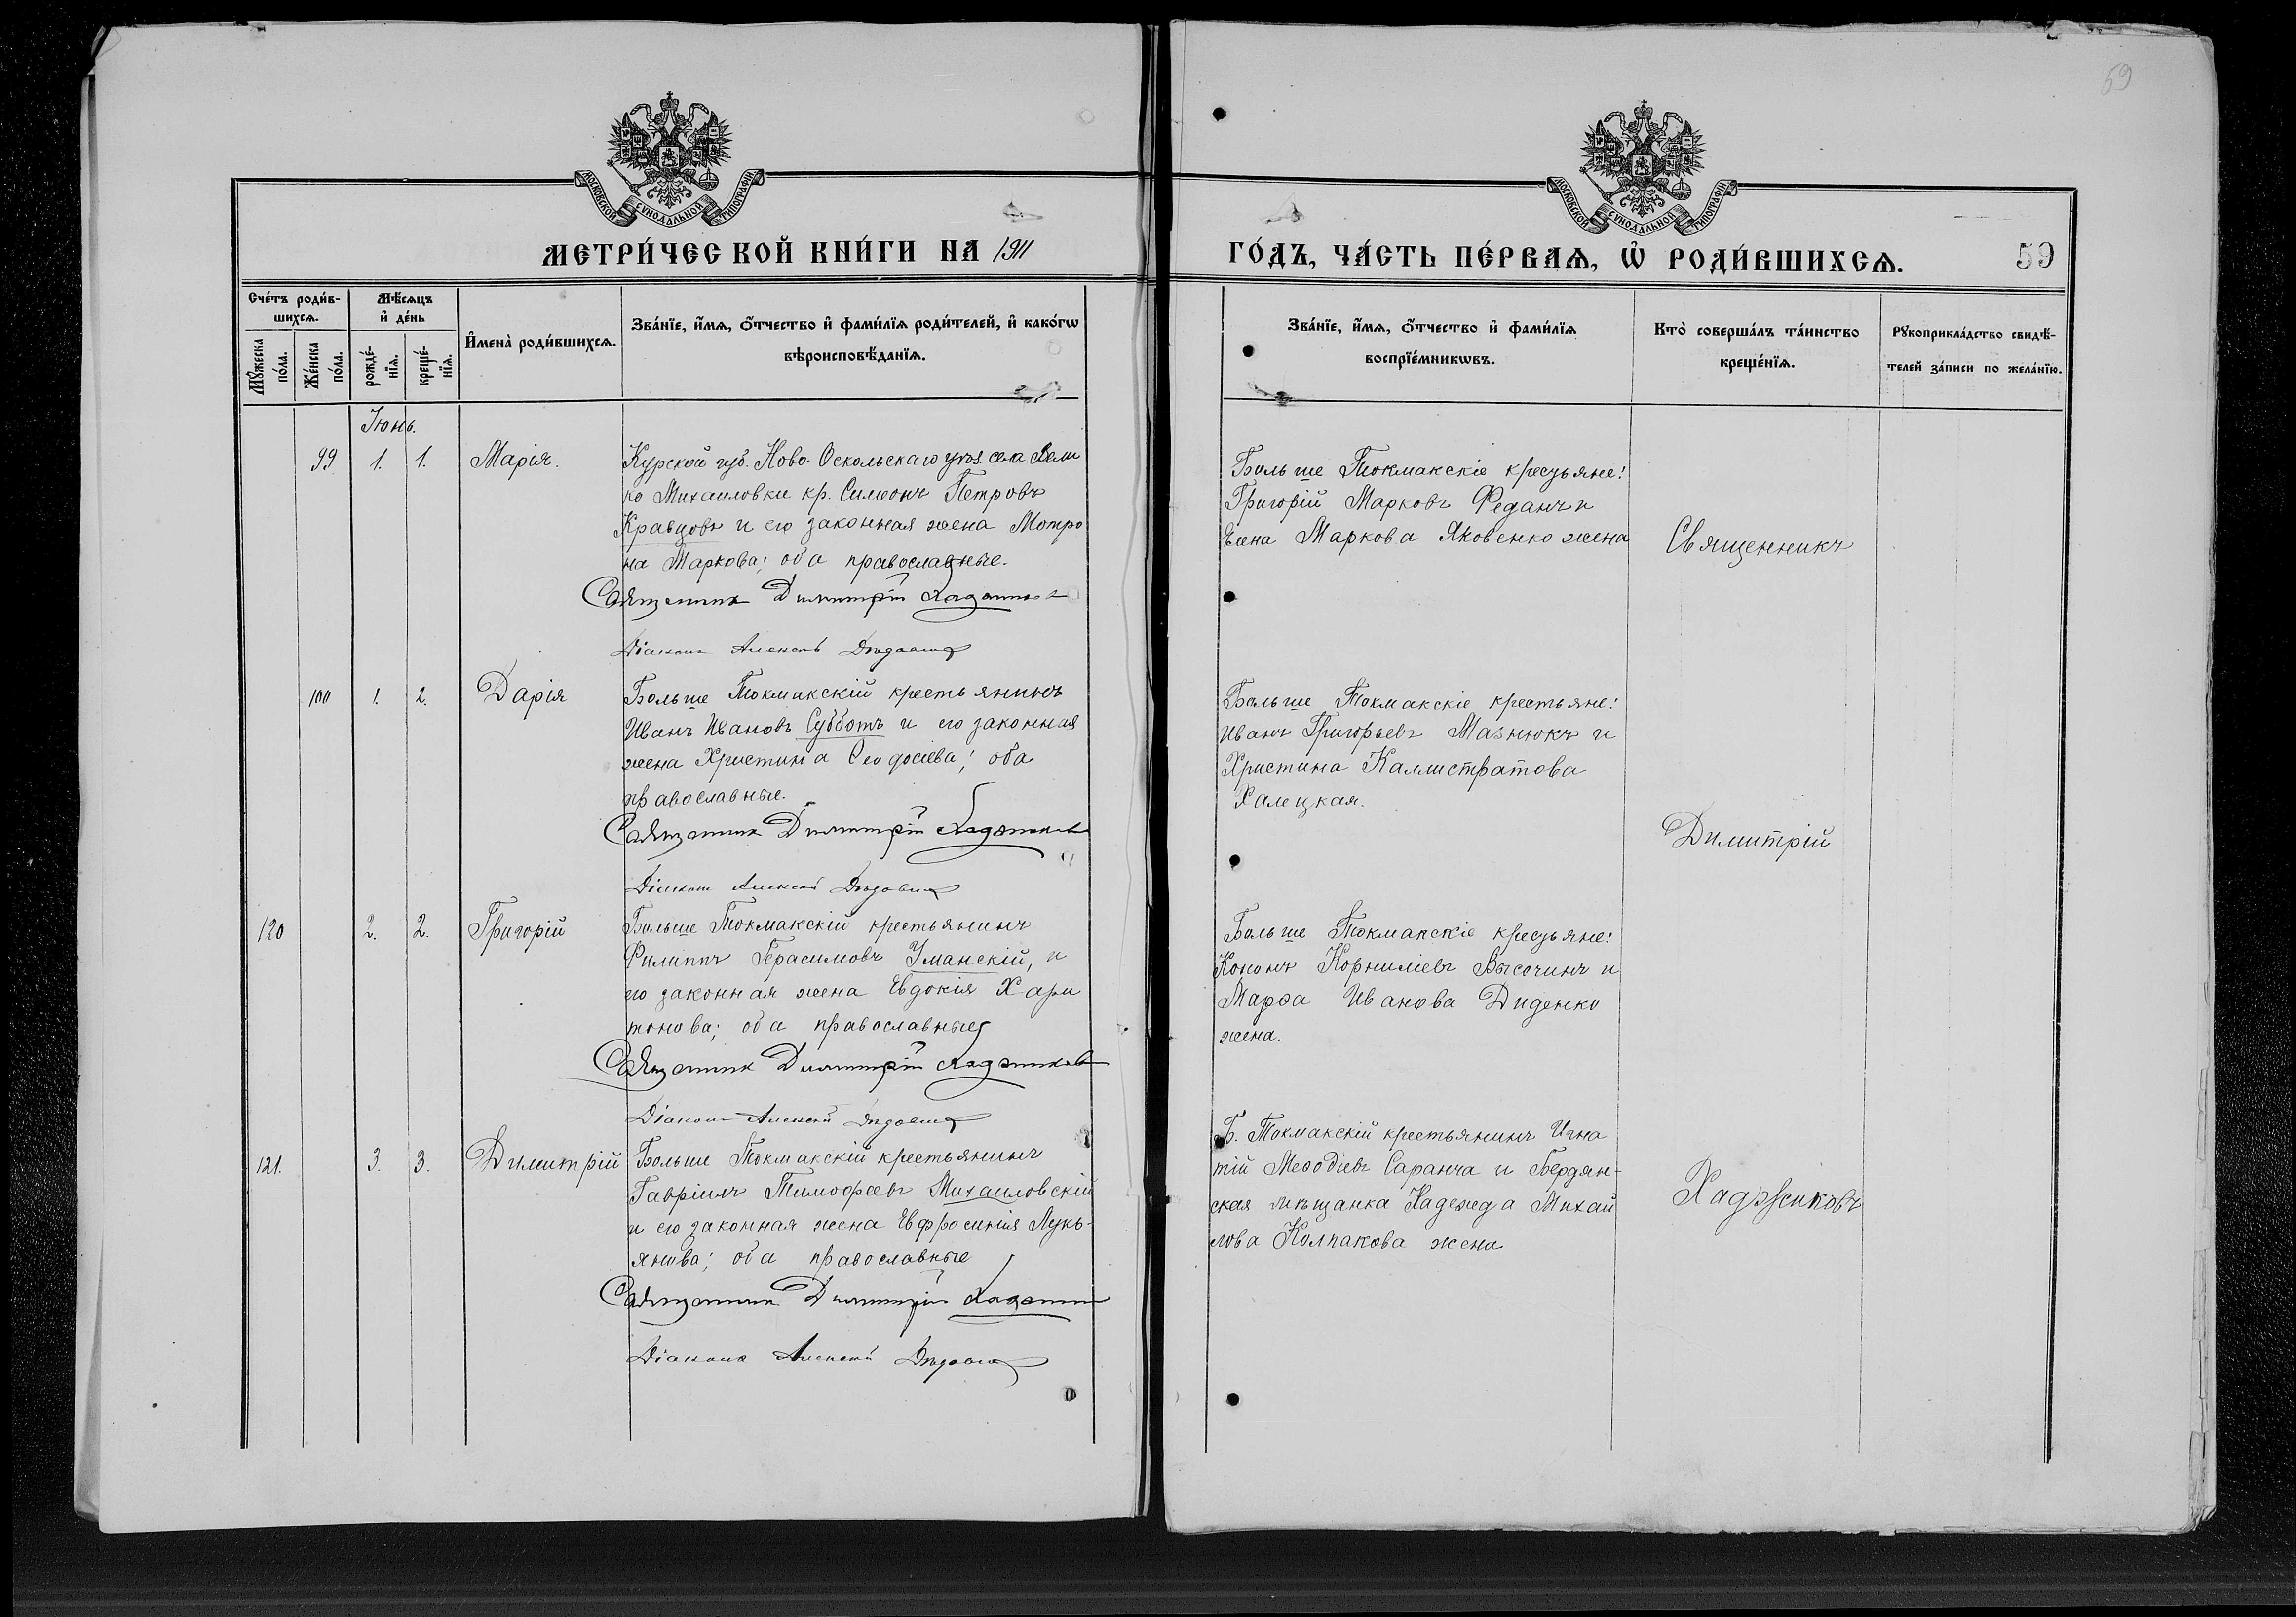 59
МОСКОВСКОЙ СѴНОДАЛЬНОЙ ТИПОГРАФІИ
МОСКОВСКОЙ СѴНОДАЛЬНОЙ ТИПОГРАФІИ
МЕТРИ́ЧЕСКОЙ КНИ́ГИ НА 1911
ГО́ДЪ, ЧА́СТЬ ПЕ́РВАѦ, Ѡ҆ РОДИ́ВШИХСѦ.
59
Сче́тъ роди́в-
шихсѧ.
Мꙋ́жеска по́ла.
Же́нска по́ла.
Мѣ́сѧцъ и҆ де́нь
рожде́-нїѧ.
креще́-нїѧ.
И҆мена̀ роди́вшихсѧ.
Зва́нїе, и҆́мѧ, ѻ҆́тчество и҆ фами́лїѧ роди́телей, и҆ како́гѡ
вѣроисповѣ́данїѧ.
Зва́нїе, и҆́мѧ, ѻ҆́тчество и҆ фами́лїѧ
воспрїе́мникѡвъ.
Кто̀ соверша́лъ та́инство
креще́нїѧ.
Рꙋкоприкла́дство свидѣ́-
телей за́писи по жела́нїю.
Іюнь.
99 1. 1. Марія.
Курской губ. Ново-Оскольскаго уѣз. села Вели
ко Михаиловки кр. Симеонъ Петровъ
Кравцовъ и его законная жена Мотро
на Маркова; оба православные.
Священникъ Димитрій Хаджиковъ
Діаконъ Алексѣй
Больше Токмакскіе крестьяне:
Григорій Марковъ Феданъ и
Елена Маркова Яковенко жена
Священникъ
100 1. 2. Дарія
Больше Токмакскій крестьянинъ
Иванъ Ивановъ Субботъ и его законная
жена Христина Феодосіева; оба
православные.
Священникъ Димитрій Хаджиковъ
Діаконъ Алексѣй
Больше Токмакскіе крестьяне:
Иванъ Григорьевъ Мазнюкъ и
Христина Каллистратова
Халецкая.
Димитрій
120 2. 2. Григорій
Больше Токмакскій крестьянинъ
Филиппъ Герасимовъ Уманскій, и
его законная жена Евдокія Хари
тонова; оба православные
Священникъ Димитрій Хаджиковъ
Діаконъ Алексѣй
Больше Токмакскіе крестьяне:
Кононъ Корниліевъ Высочинъ и
Марѳа Иванова Диденко
жена.
121. 3. 3. Димитрій
Больше Токмакскій крестьянинъ
Гавріилъ Тимофеевъ Михаиловскій
и его законная жена Евфросинія Лукь-
янова; оба православные
Священникъ Димитрій Хаджиковъ
Діаконъ Алексѣй
Б. Токмакскій крестьянинъ Игна
тій Меѳодіевъ Саранча и Бердян-
ская мѣщанка Надежда Михай
лова Колпакова жена
Хаджиковъ